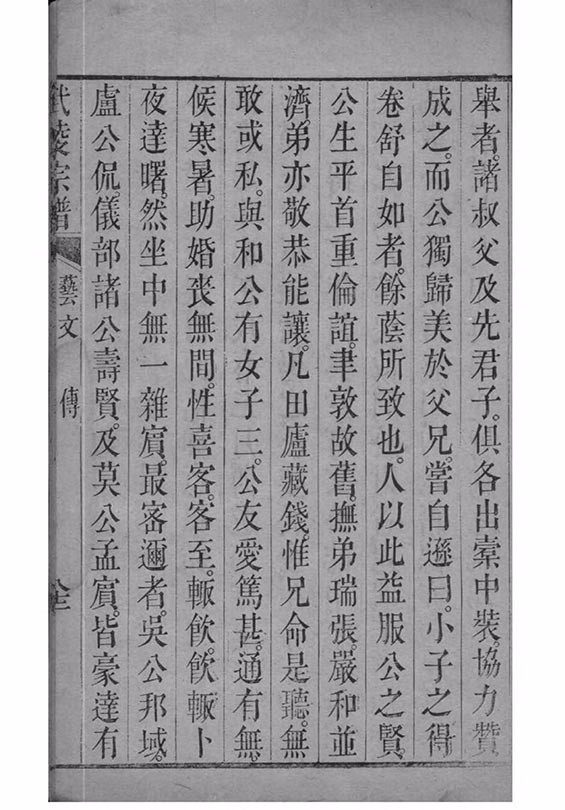 舉者。諸叔父及先君子。俱各出橐中裝。協力贊
成之。而公獨歸美於父兄。嘗自遜曰。小子之得
卷舒自如者。餘蔭所致也。人以此益服公之賢。
公生平首重倫誼。聿敦故舊。撫弟瑞張。嚴和並
濟。弟亦敬恭能讓。凡田廬藏錢。惟兄命是聽。無
敢或私。與和公有女子三。公友愛篤甚。通有無。
候寒暑。助婚喪無間。性喜客。客至。輒飲。飲輒卜
夜達曙。然坐中無一雜賓。最密邇者。吳公邦域。
盧公侃。儀部諸公壽賢。及莫公孟賓。皆豪達有
宗譜 藝文 傳